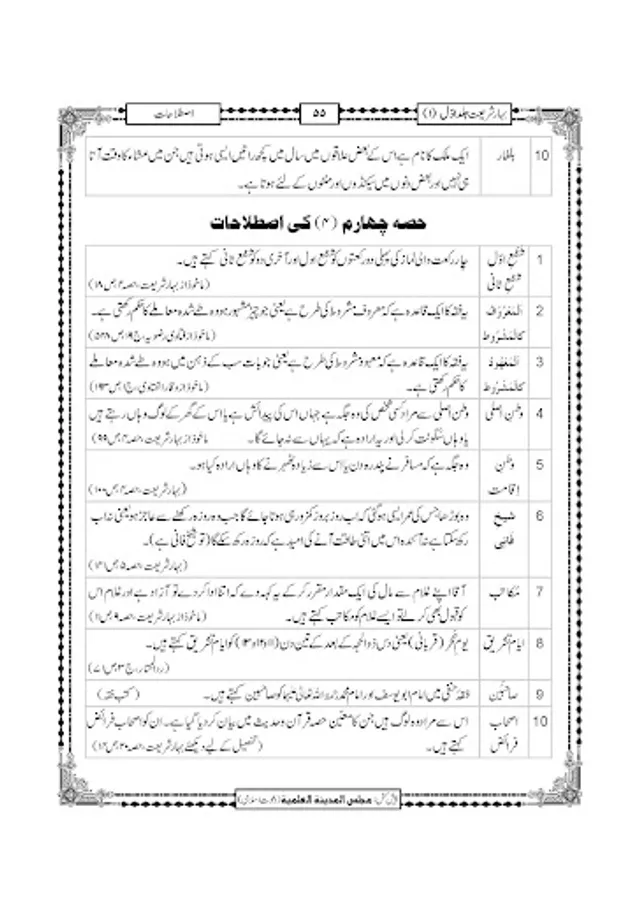 بہارِ شریعت جلد اوّل (1)
۵۵
اصطلاحات
10 بلغار ایک ملک کا نام ہے اس کے بعض علاقوں میں سال میں کچھ راتیں ایسی ہوتی ہیں جن میں عشاء کا وقت آتا
ہی نہیں اور بعض دنوں میں سیکنڈوں اور منٹوں کے لئے ہوتا ہے۔
حصہ چہارم (۴) کی اصطلاحات
1 شفع اوّل چار رکعت والی نماز کی پہلی دو رکعتوں کو شفع اول اور آخری دو کو شفع ثانی کہتے ہیں۔
شفع ثانی (ماخوذ از بہار شریعت، حصہ ۴، ص ۱۸)
2 اَلْمَعْرُوْف یہ فقہ کا ایک قاعدہ ہے کہ معروف مشروط کی طرح ہے یعنی جو چیز مشہور ہو وہ طے شدہ معاملے کا حکم رکھتی ہے۔
کَالْمَشْرُوْط (ماخوذ از فتاوی رضویہ، ج ۱۹، ص ۵۲۸)
3 اَلْمَعْهُوْدُ یہ فقہ کا ایک قاعدہ ہے کہ معہود مشروط کی طرح ہے یعنی جو بات سب کے ذہن میں ہو وہ طے شدہ معاملے
کَالْمَشْرُوْط کا حکم رکھتی ہے۔ (ماخوذ از وقار الفتاوی، ج ۱، ص ۱۹۳)
4 وطن اصلی وطن اصلی سے مراد کسی شخص کی وہ جگہ ہے جہاں اس کی پیدائش ہے یا اس کے گھر کے لوگ وہاں رہتے ہیں
یا وہاں سکونت کر لی اور یہ ارادہ ہے کہ یہاں سے نہ جائے گا۔ ماخوذ از بہار شریعت، حصہ ۴، ص ۹۹)
5 وطن وہ جگہ ہے کہ مسافر نے پندرہ دن یا اس سے زیادہ ٹھہرنے کا وہاں ارادہ کیا ہو۔
اِقامت (بہار شریعت، حصہ ۴، ص ۱۰۰)
6 شیخ وہ بوڑھا جس کی عمر ایسی ہو گئی کہ اب روز بروز کمزور ہی ہوتا جائے گا جب وہ روزہ رکھنے سے عاجز ہو یعنی نہ اب
فانی رکھ سکتا ہے نہ آئندہ اس میں اتنی طاقت آنے کی امید ہے کہ روزہ رکھ سکے گا (تو شیخ فانی ہے)۔
(بہار شریعت، حصہ ۵، ص ۱۴۱)
7 مُکاتَب آقا اپنے غلام سے مال کی ایک مقدار مقرر کر کے یہ کہہ دے کہ اتنا ادا کر دے تو آزاد ہے اور غلام اس
کو قبول بھی کر لے تو ایسے غلام کو مکاتب کہتے ہیں۔ (ماخوذ از بہار شریعت، حصہ ۹، ص ۱۱)
8 ایام تشریق یوم نحر (قربانی) یعنی دس ذوالحجہ کے بعد کے تین دن (۱۱،۱۲و۱۳) کو ایام تشریق کہتے ہیں۔
(ردالمحتار، ج ۳، ص ۷۱)
9 صاحبین فقہ حنفی میں امام ابو یوسف اور امام محمد رحمۃ اللہ تعالیٰ علیہما کو صاحبین کہتے ہیں۔ (کتب فقہ)
10 اصحاب اس سے مراد وہ لوگ ہیں جن کا معیّن حصہ قرآن و حدیث میں بیان کر دیا گیا ہے۔ ان کو اصحاب فرائض
فرائض کہتے ہیں۔ (تفصیل کے لیے دیکھئے بہار شریعت، حصہ ۲۰، ص ۱۴)
پیش کش: مجلس المدینۃ العلمیۃ (دعوت اسلامی)